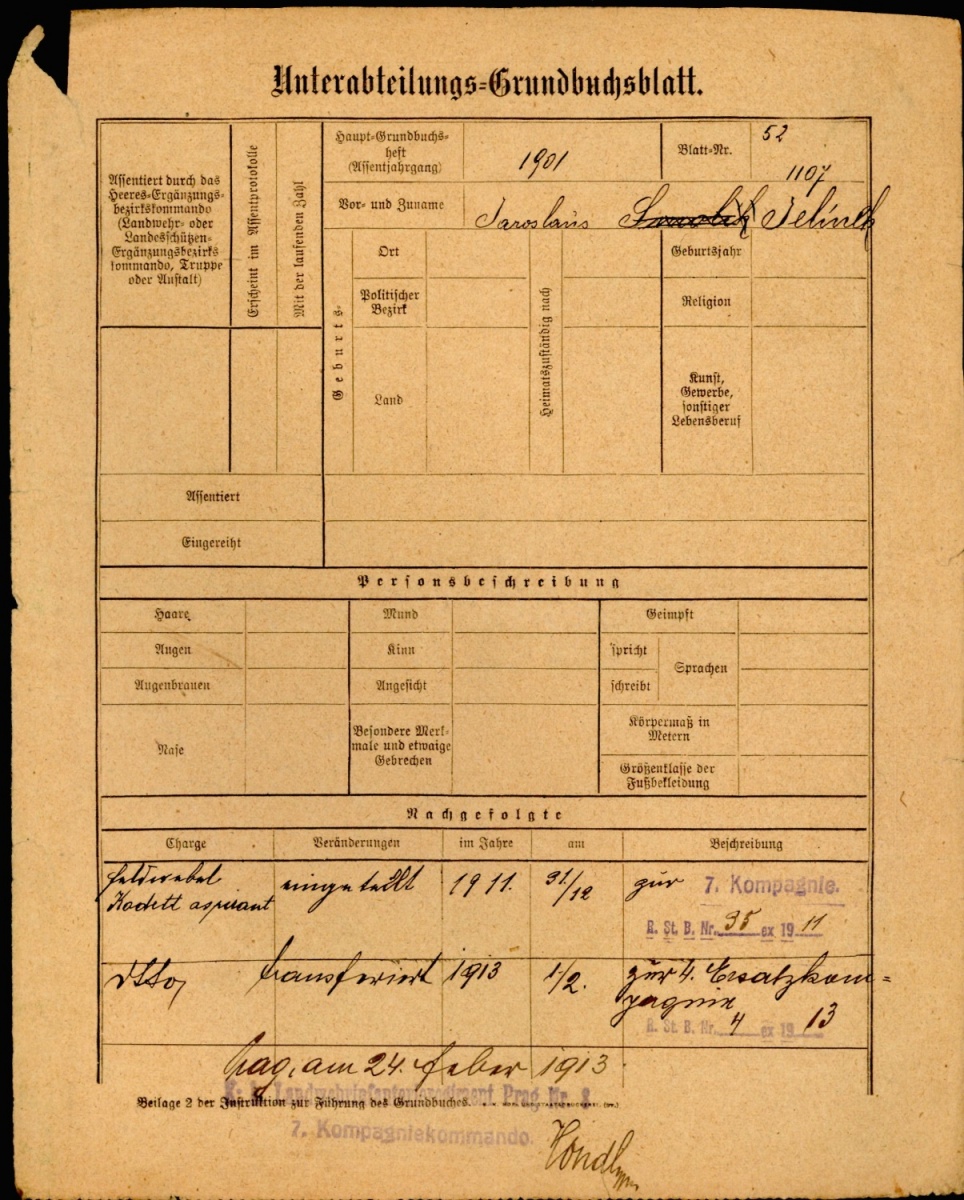 Unterabteilungs=Grundbuchsblatt.
Assentiert durch das
Heeres-Ergänzungs-
bezirkskommando
(Landwehr- oder
Landesschützen-
Ergänzungsbezirks
kommando, Truppe
oder Anstalt)
Erscheint im Assentprotokolle
Mit der laufenden Zahl
Haupt-Grundbuchs-
heft
(Assentjahrgang)
1901
Blatt-Nr.
52
1107
Vor- und Zuname
Jaroslaus
Jelínek
Geburts-
Ort
Politischer
Bezirk
Land
Heimatszuständig nach
Geburtsjahr
Religion
Kunst,
Gewerbe,
sonstiger
Lebensberuf
Assentiert
Eingereiht
Personsbeschreibung
Haare
Augen
Augenbrauen
Nase
Mund
Kinn
Angesicht
Besondere Merk-
male und etwaige
Gebrechen
Geimpft
spricht
schreibt
Sprachen
Körpermaß in
Metern
Größenklasse der
Fußbekleidung
Nachgefolgte
Charge Veränderungen im Jahre am Beschreibung
Feldwebel
Kadett aspirant
eingeteilt 1911. 31/12 zur 7. Kompagnie.
R. St. B. Nr. 35 ex 1911
dtto, transferiert 1913 1/2. zur 4. Ersatzkom=
pagnie
R. St. B. Nr. 4 ex 1913
Prag, am 24. feber 1913.
K. k. Landwehrinfanterieregiment Prag Nr. 8
Beilage 2 der Instruktion zur Führung des Grundbuches.
7. Kompagniekommando.